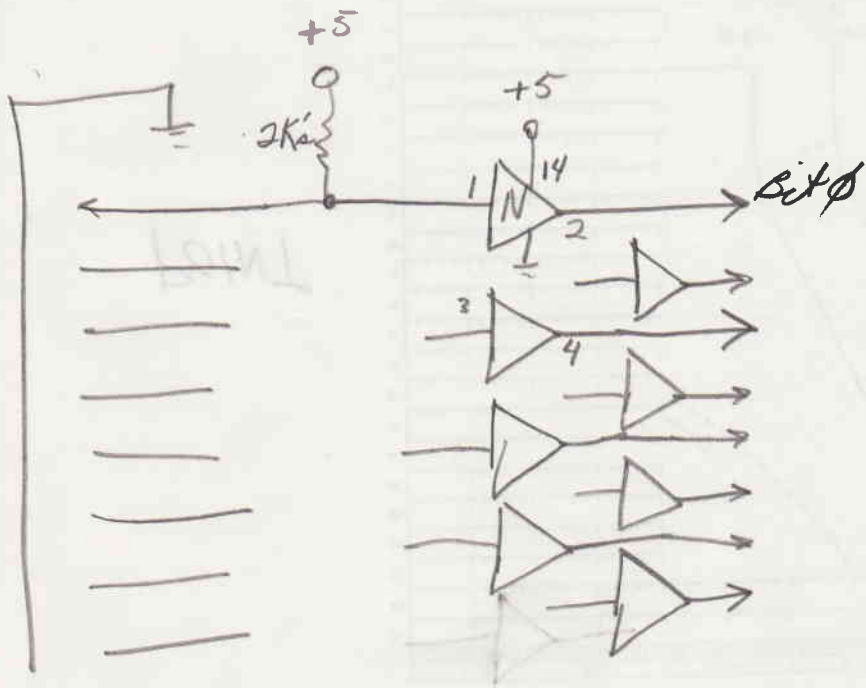 +5
+5
2K's
1
N
14
2
Bit φ
3
4